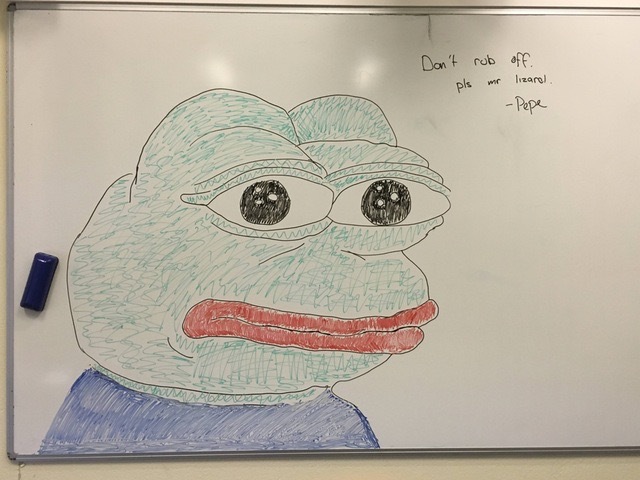 Don't rub off.
pls mr lizard.
-Pepe